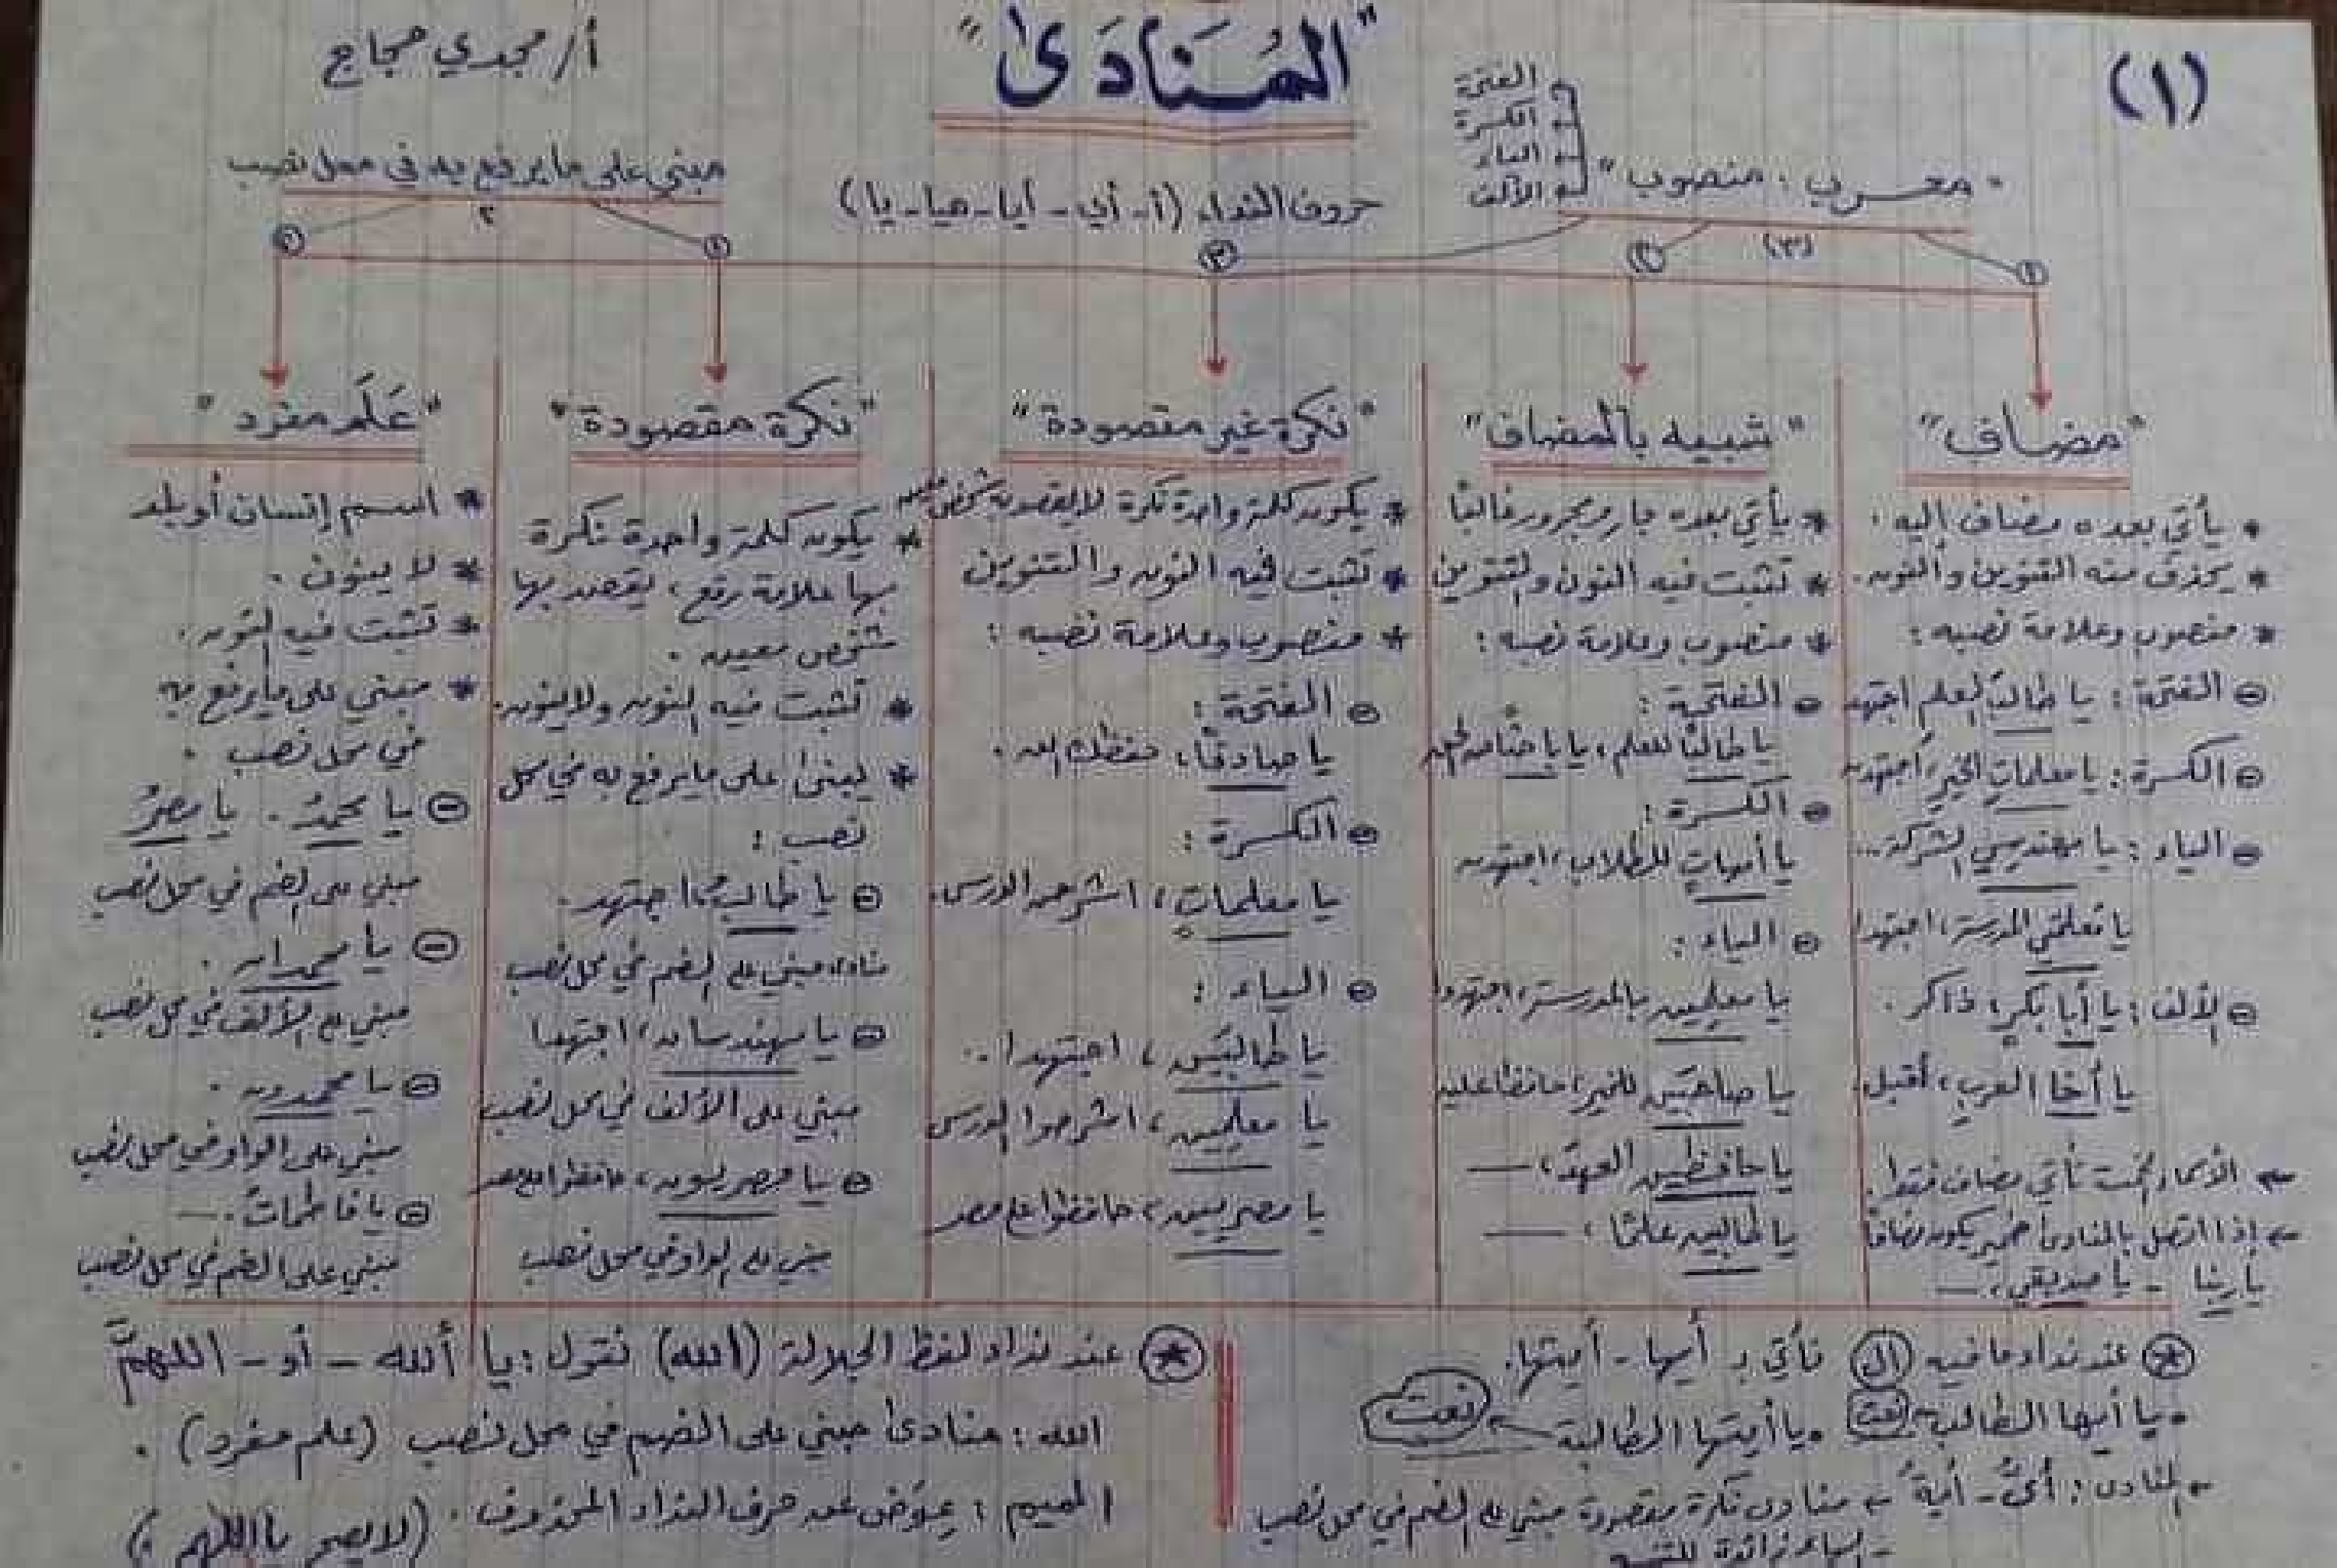 (١)
"المُنَادَى"
أ/ مجدي حجاج
"معرب: منصوب"
الفتحة
الكسرة
الياء
الألف
حروف النداء (أ - أي - أيا - هيا - يا)
مبني على ما يرفع به في محل نصب
(٣)
٢
① ② ③ ① ②
"مضاف"
* يأتي بعده مضاف إليه.
* يحذف منه التنوين والنون.
* منصوب وعلامة نصبه:
⊖ الفتحة: يا طالبَ العلم اجتهد
⊖ الكسرة: يا معلماتِ الخير، اجتهدن
⊖ الياء: يا مهندسي الشركة..
يا معلمَي المدرسة، اجتهدا
⊖ الألف: يا أبا بكر، ذاكر.
يا أخا العرب، أقبل.
← الأسماء الخمسة تأتي مضاف فقط.
← إذا اتصل بالمنادى ضمير يكون مضافًا
يا ربنا - يا صديقي، —
"شبيه بالمضاف"
* يأتي بعده جار ومجرور غالبًا
* تثبت فيه النون والتنوين
* منصوب وعلامة نصبه:
⊖ الفتحة:
يا طالبًا للعلم، يا باحثًا عن الحق
⊖ الكسرة:
يا أمهاتٍ للطلاب، اجتهدن
⊖ الياء:
يا معلمين بالمدرسة، اجتهدوا
يا صاحبَين للخير، حافظا عليه
يا حافظين العهدَ، —
يا طالبين علمًا، —
"نكرة غير مقصودة"
* يكون كلمة واحدة نكرة لا يقصد به شخص معين
* تثبت فيه النون والتنوين
* منصوب وعلامة نصبه:
⊖ الفتحة:
يا صادقًا، حفظك الله.
⊖ الكسرة:
يا معلماتٍ، اشرحن الدرس.
⊖ الياء:
يا طالبَين، اجتهدا..
يا معلمين، اشرحوا الدرس
يا مصريين، حافظوا على مصر
"نكرة مقصودة"
* يكون كلمة واحدة نكرة
بها علامة رفع، يقصد بها
شخص معين.
* تثبت فيه النون ولا ينون.
* يبنى على ما يرفع به في محل
نصب:
⊖ يا طالبُ، اجتهد.
منادى مبني على الضم في محل نصب
⊖ يا مهندسان، اجتهدا
مبني على الألف في محل نصب
⊖ يا مصريون، حافظوا على مصر
مبني على الواو في محل نصب
"عَلَم مفرد"
* اسم إنسان أو بلد
* لا ينون.
* تثبت فيه النون.
* مبني على ما يرفع به
في محل نصب.
⊖ يا محمدُ. يا مصرُ
مبني على الضم في محل نصب
⊖ يا محمدان.
مبني على الألف في محل نصب
⊖ يا محمدون.
مبني على الواو في محل نصب
⊖ يا فاطماتُ. —
مبني على الضم في محل نصب
* عند نداء ما فيه (ال) نأتي بـ أيها - أيتها.
• يا أيها الطالب ← نعت • يا أيتها الطالبة ← نعت
← المنادى: أيُّ - أيةُ ← منادى نكرة مقصودة مبني على الضم في محل نصب
- الهاء زائدة للتنبيه
* عند نداء لفظ الجلالة (الله) نقول: يا ألله - أو - اللهمَّ
الله: منادى مبني على الضم في محل نصب (علم مفرد).
الميم: عوض عن حرف النداء المحذوف. (لا يصح يا اللهم)